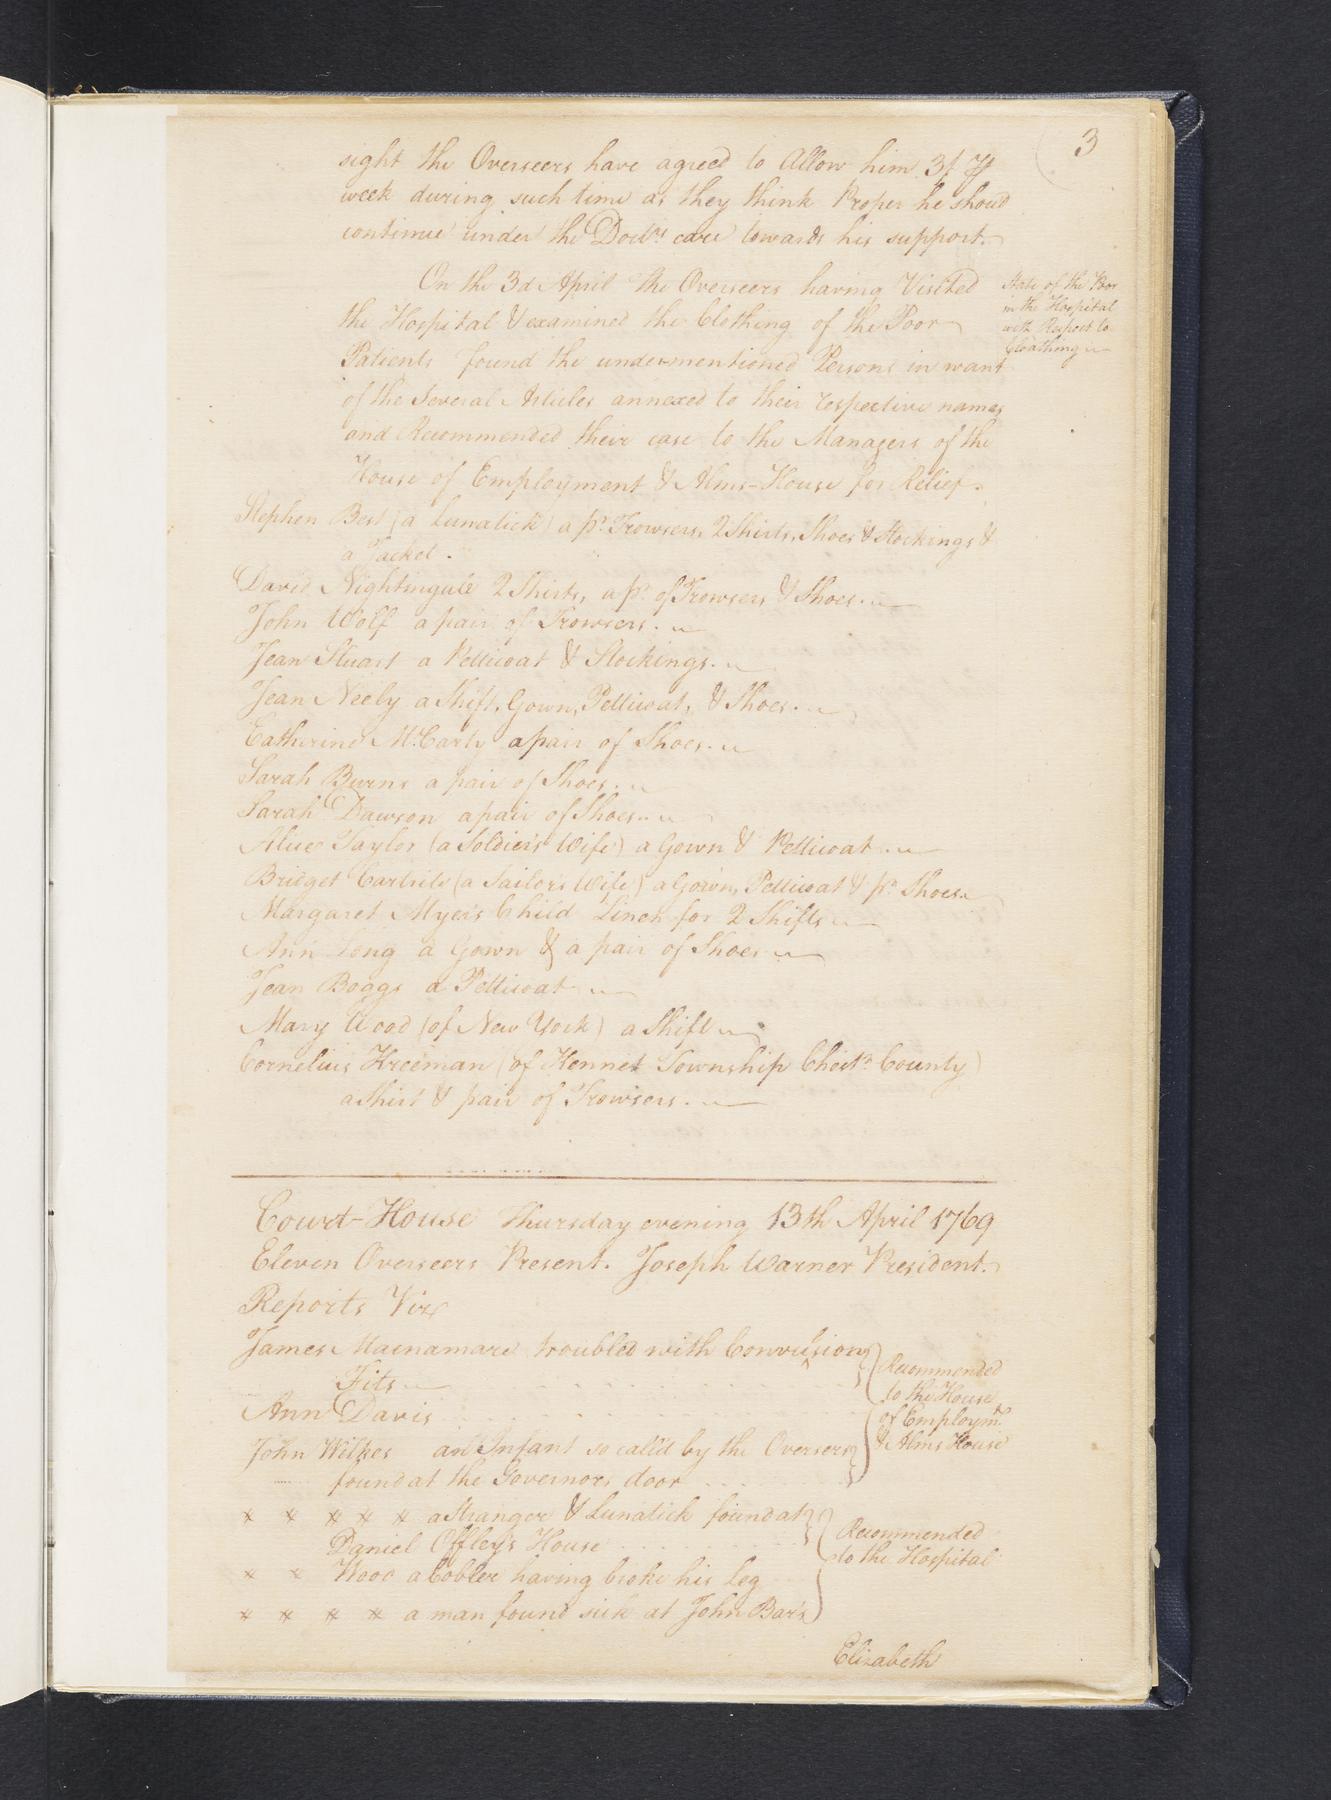 3
sight the Overseers have agreed to Allow him 3/. ⅌
week during such time as they think Proper he shoud
continue under the Doctrs care towards his support.
On the 3d April the Overseers having Visited
the Hospital & examined the Clothing of the Poor
Patients found the undermentioned Persons in want
of the Several Articles annexed to their respective names
and Recommended their case to the Managers of the
House of Employment & Alms-House for Relief.
State of the Poor
in the Hospital
with Respect to
Cloathing
Stephen Best (a Lunatick) a pr. Trowsers, 2 Shirts, Shoes & Stockings &
a Jacket.
David Nightingale 2 Shirts, a pr. of Trowsers & Shoes.
John Wolf a pair of Trowsers.
Jean Stuart a Petticoat & Stockings.
Jean Neely a Shift, Gown, Petticoat, & Shoes.
Catherine McCarty a pair of Shoes.
Sarah Burns a pair of Shoes.
Sarah Dawson a pair of Shoes.
Alice Taylor (a Soldier's Wife) a Gown & Petticoat.
Bridget Carlisle (a Sailor's Wife) a Gown, Petticoat & pr. Shoes.
Margaret Myer's Child Linen for 2 Shifts
Ann Long a Gown & a pair of Shoes
Jean Boggs a Petticoat
Mary Wood (of New York) a Shift
Cornelius Freeman (of Kennet Township Chestr. County)
a Shirt & pair of Trowsers.
Court-House Thursday evening 13th April 1769
Eleven Overseers Present. Joseph Warner President.
Reports Viz
James Macnamare troubled with Convulsion
Fits
Ann Davis
John Wilkes an Infant so call'd by the Oversers
found at the Governors door
Recommended
to the House
of Employmt.
& Alms House
* * * * * a Stranger & Lunatick found at
Daniel Offley's House
* * Wood a Cobler having broke his Leg
* * * * a man found sick at John Bar's
Recommended
to the Hospital
Elizabeth